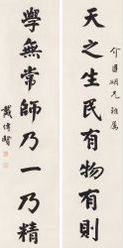 天之生民有物有則
學無常師乃一乃精
戴傳賢